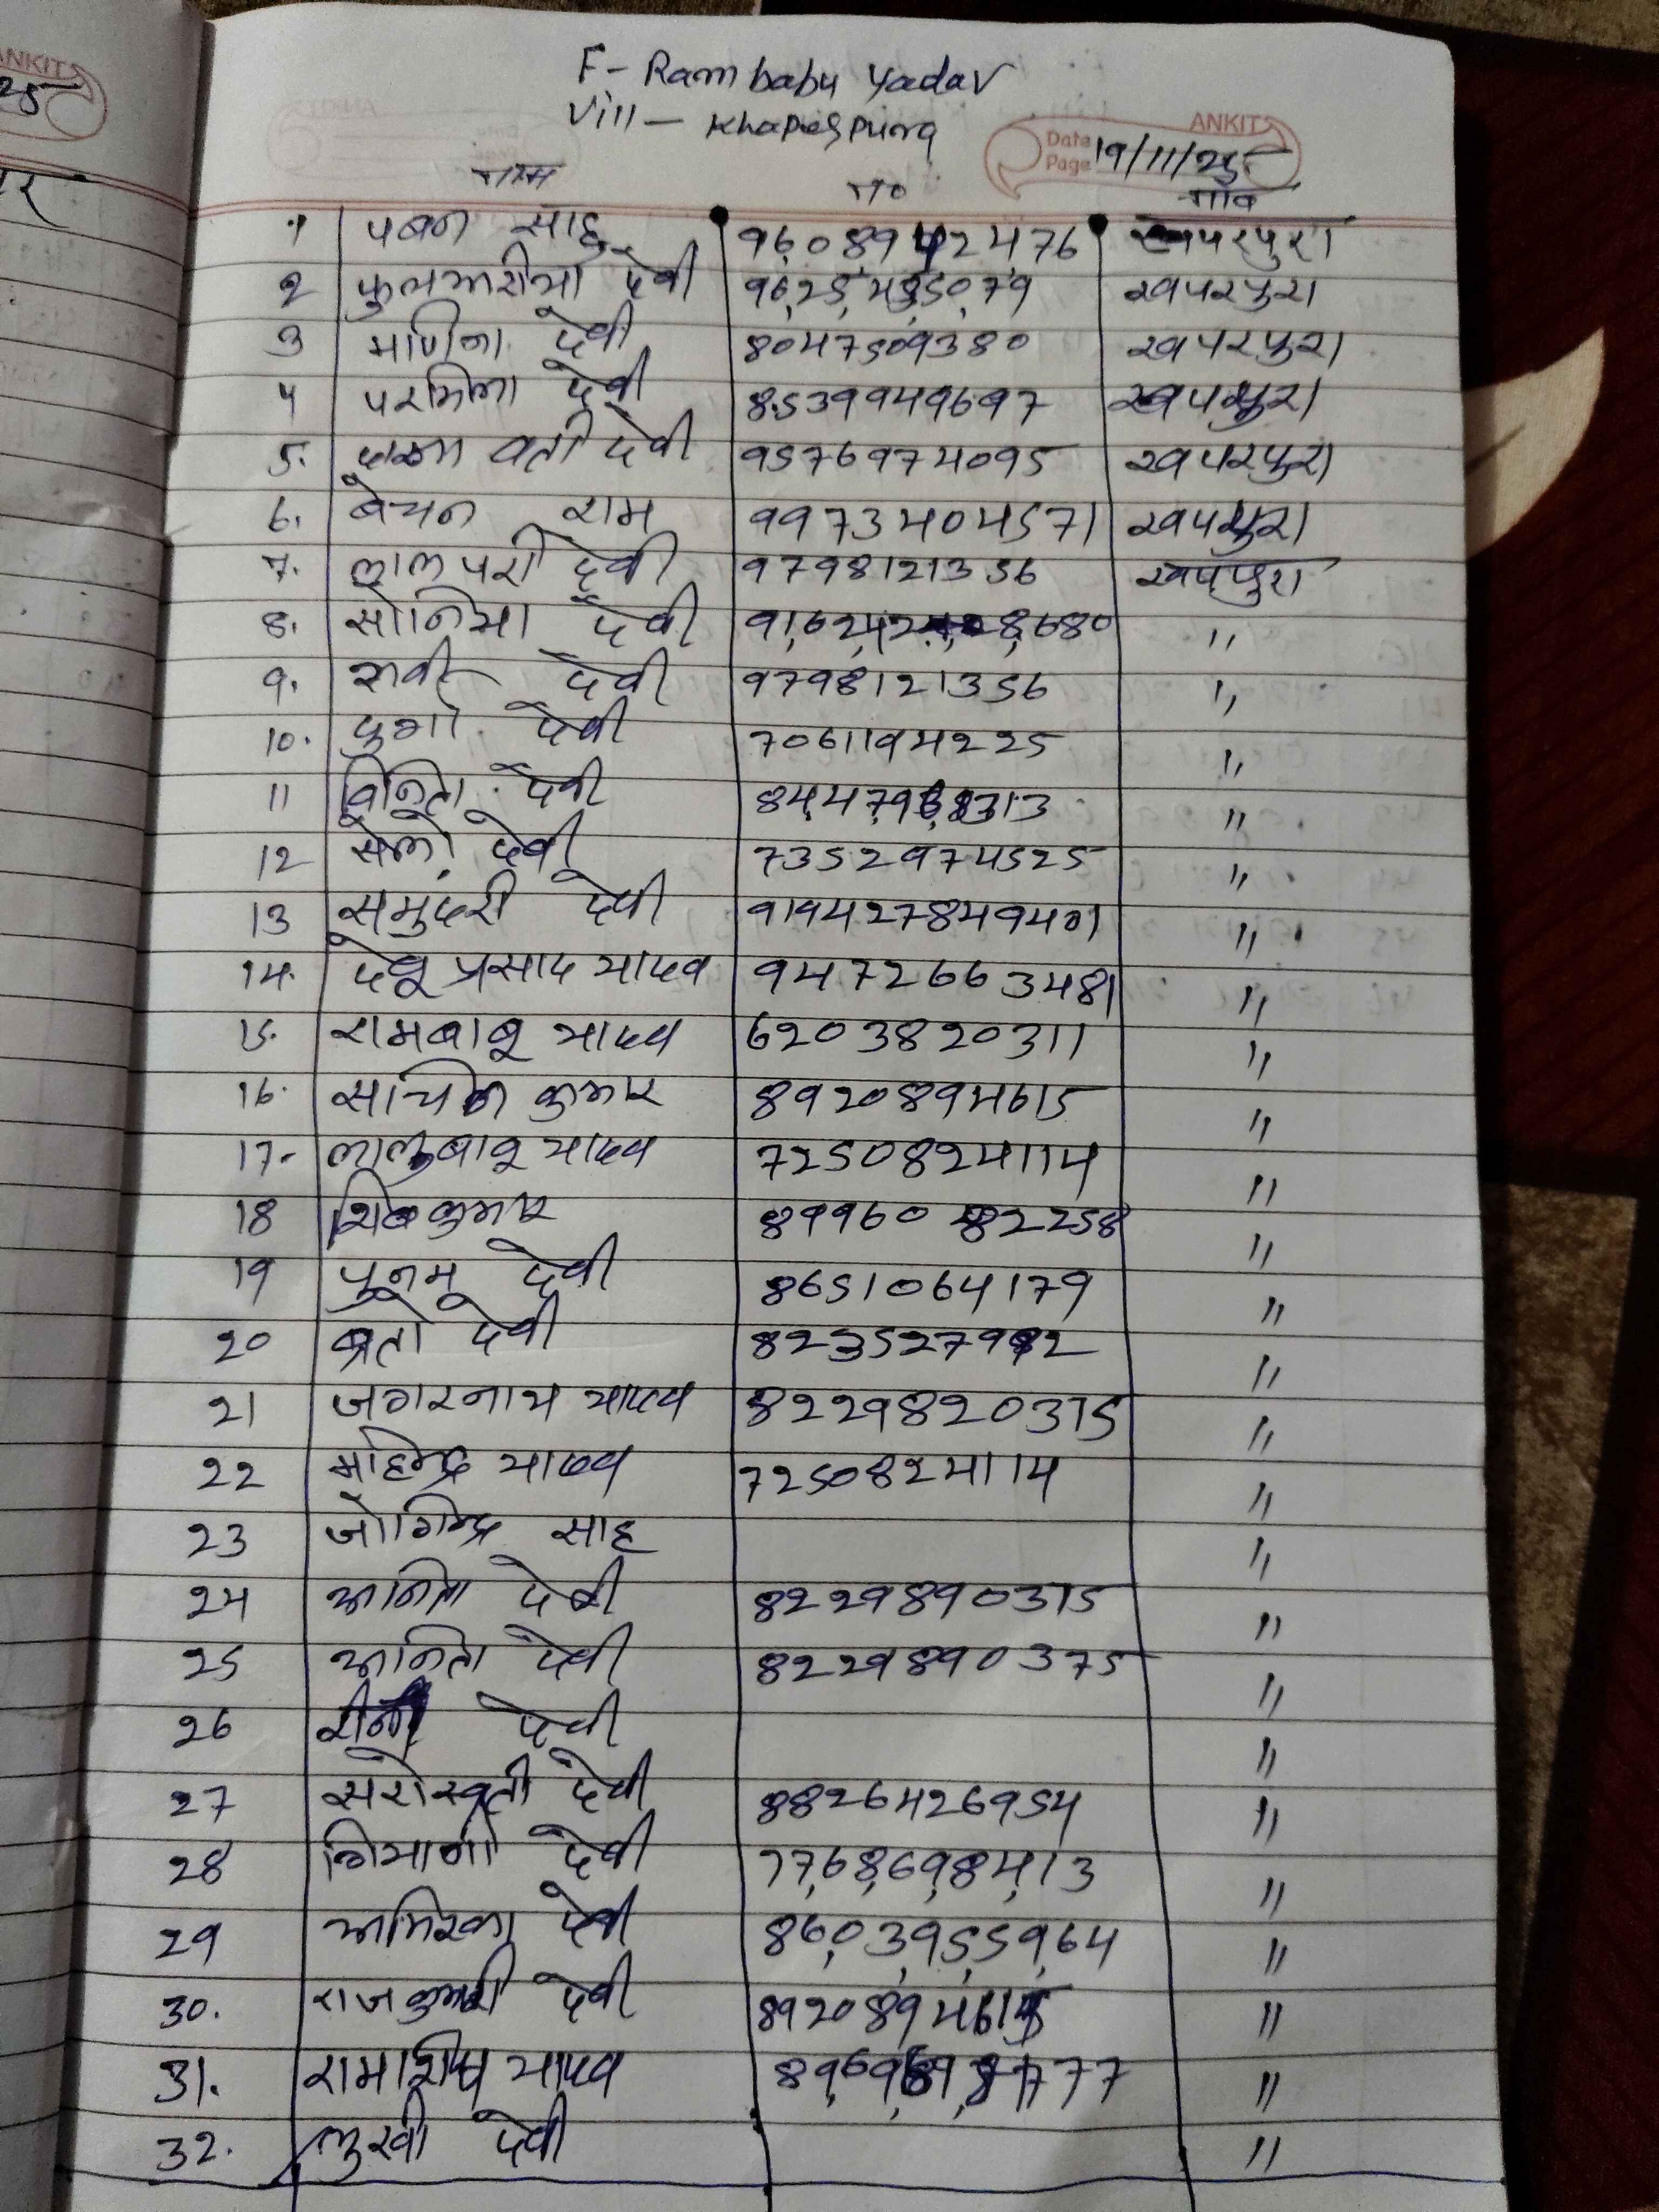 ANKIT
25
F- Rambabu Yadav
Vill- Khaparspura
ANKIT
Date
Page 19/11/25
नाम no गाँव
1 पवन साहु 9608942476 खपरपुरा
2 फुलझरीया देवी खपरपुरा
3 देवी 8047509380 खपरपुरा
4 परमिला देवी 8539949697 खपरपुरा
5. वती देवी 9576974095 खपरपुरा
6. बेचन राम 9973404571 खपरपुरा
7. लालपरी देवी 9798121356 खपरपुरा
8. सोनिया देवी "
9. देवी 9798121356 "
10. देवी 7061194225 "
11 विनिता देवी "
12 देवी 7352974525 "
13 समुदरी देवी "
14. प्रसाद यादव 9472663481 "
15. रामबाबू यादव 6203820311 "
16. सचिन कुमार 8920894615 "
17- लालुबाबू यादव 7250824114 "
18 शिवकुमार 8996082258 "
19 पुनम देवी 8651064179 "
20 देवी "
21 जगरनाथ यादव 8229820375 "
22 यादव 7250824114 "
23 जोगिन्द्र साह "
24 अनिता देवी 8229890375 "
25 अनिता देवी 8229890375 "
26 देवी "
27 सरोस्वती देवी 8826426954 "
28 देवी 7768698413 "
29 अमिरका देवी 8603955964 "
30. राजकुमारी देवी 8920894615 "
31. रामाशिष यादव "
32. देवी "